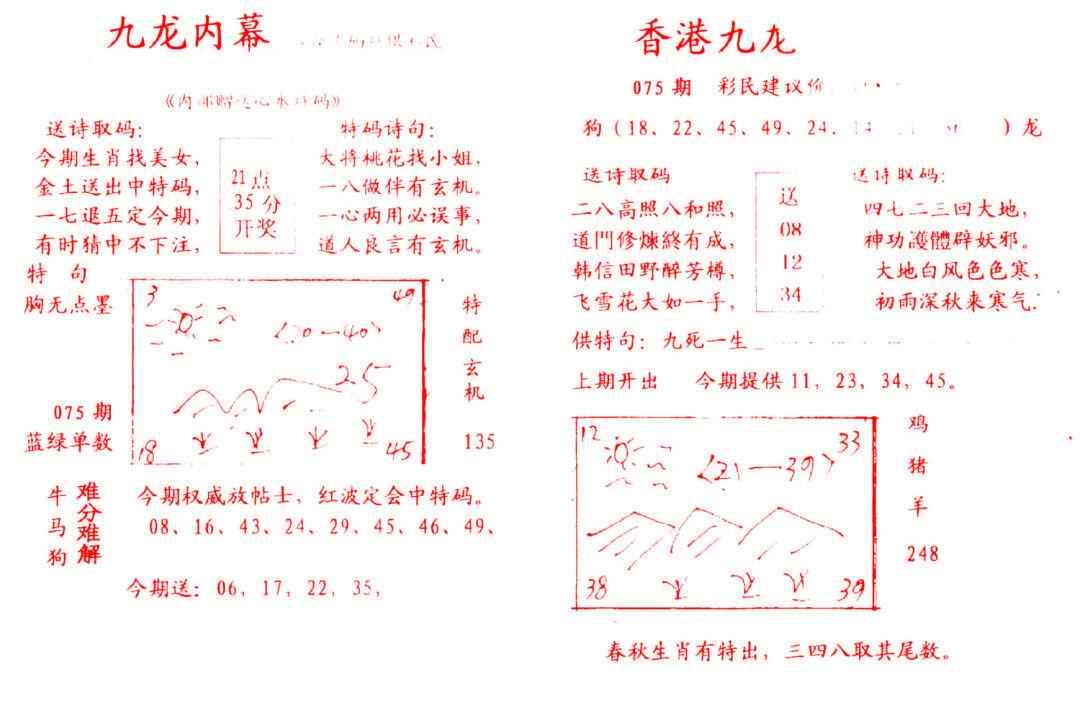 九龙内幕
送诗取码：
今期生肖找美女，
金土送出中特码，
一七退五定今期，
有时猜中不下注，
21点
35分
开奖
特码诗句：
大将桃花找小姐，
一八做伴有玄机。
一心两用必误事，
道人良言有玄机。
特 句
胸无点墨
075期
蓝绿单数
3
49
(20—40)
25
18
45
特配玄机
135
牛马狗
难分难解
今期权威放帖士，红波定会中特码。
08、16、43、24、29、45、46、49、
今期送：06，17，22，35，
香港九龙
075期 彩民建议价
狗（18、22、45、49、24、14、 ）龙
送诗取码
二八高照八和照，
道門修煉終有成，
韩信田野醉芳樽，
飞雪花大如一手，
送
08
12
34
送诗取码：
四七二三回大地，
神功護體辟妖邪。
大地白风色色寒，
初雨深秋来寒气.
供特句：九死一生
上期开出 今期提供11，23，34，45。
12
33
(21—39)
38
39
鸡
猪
羊
248
春秋生肖有特出，三四八取其尾数。